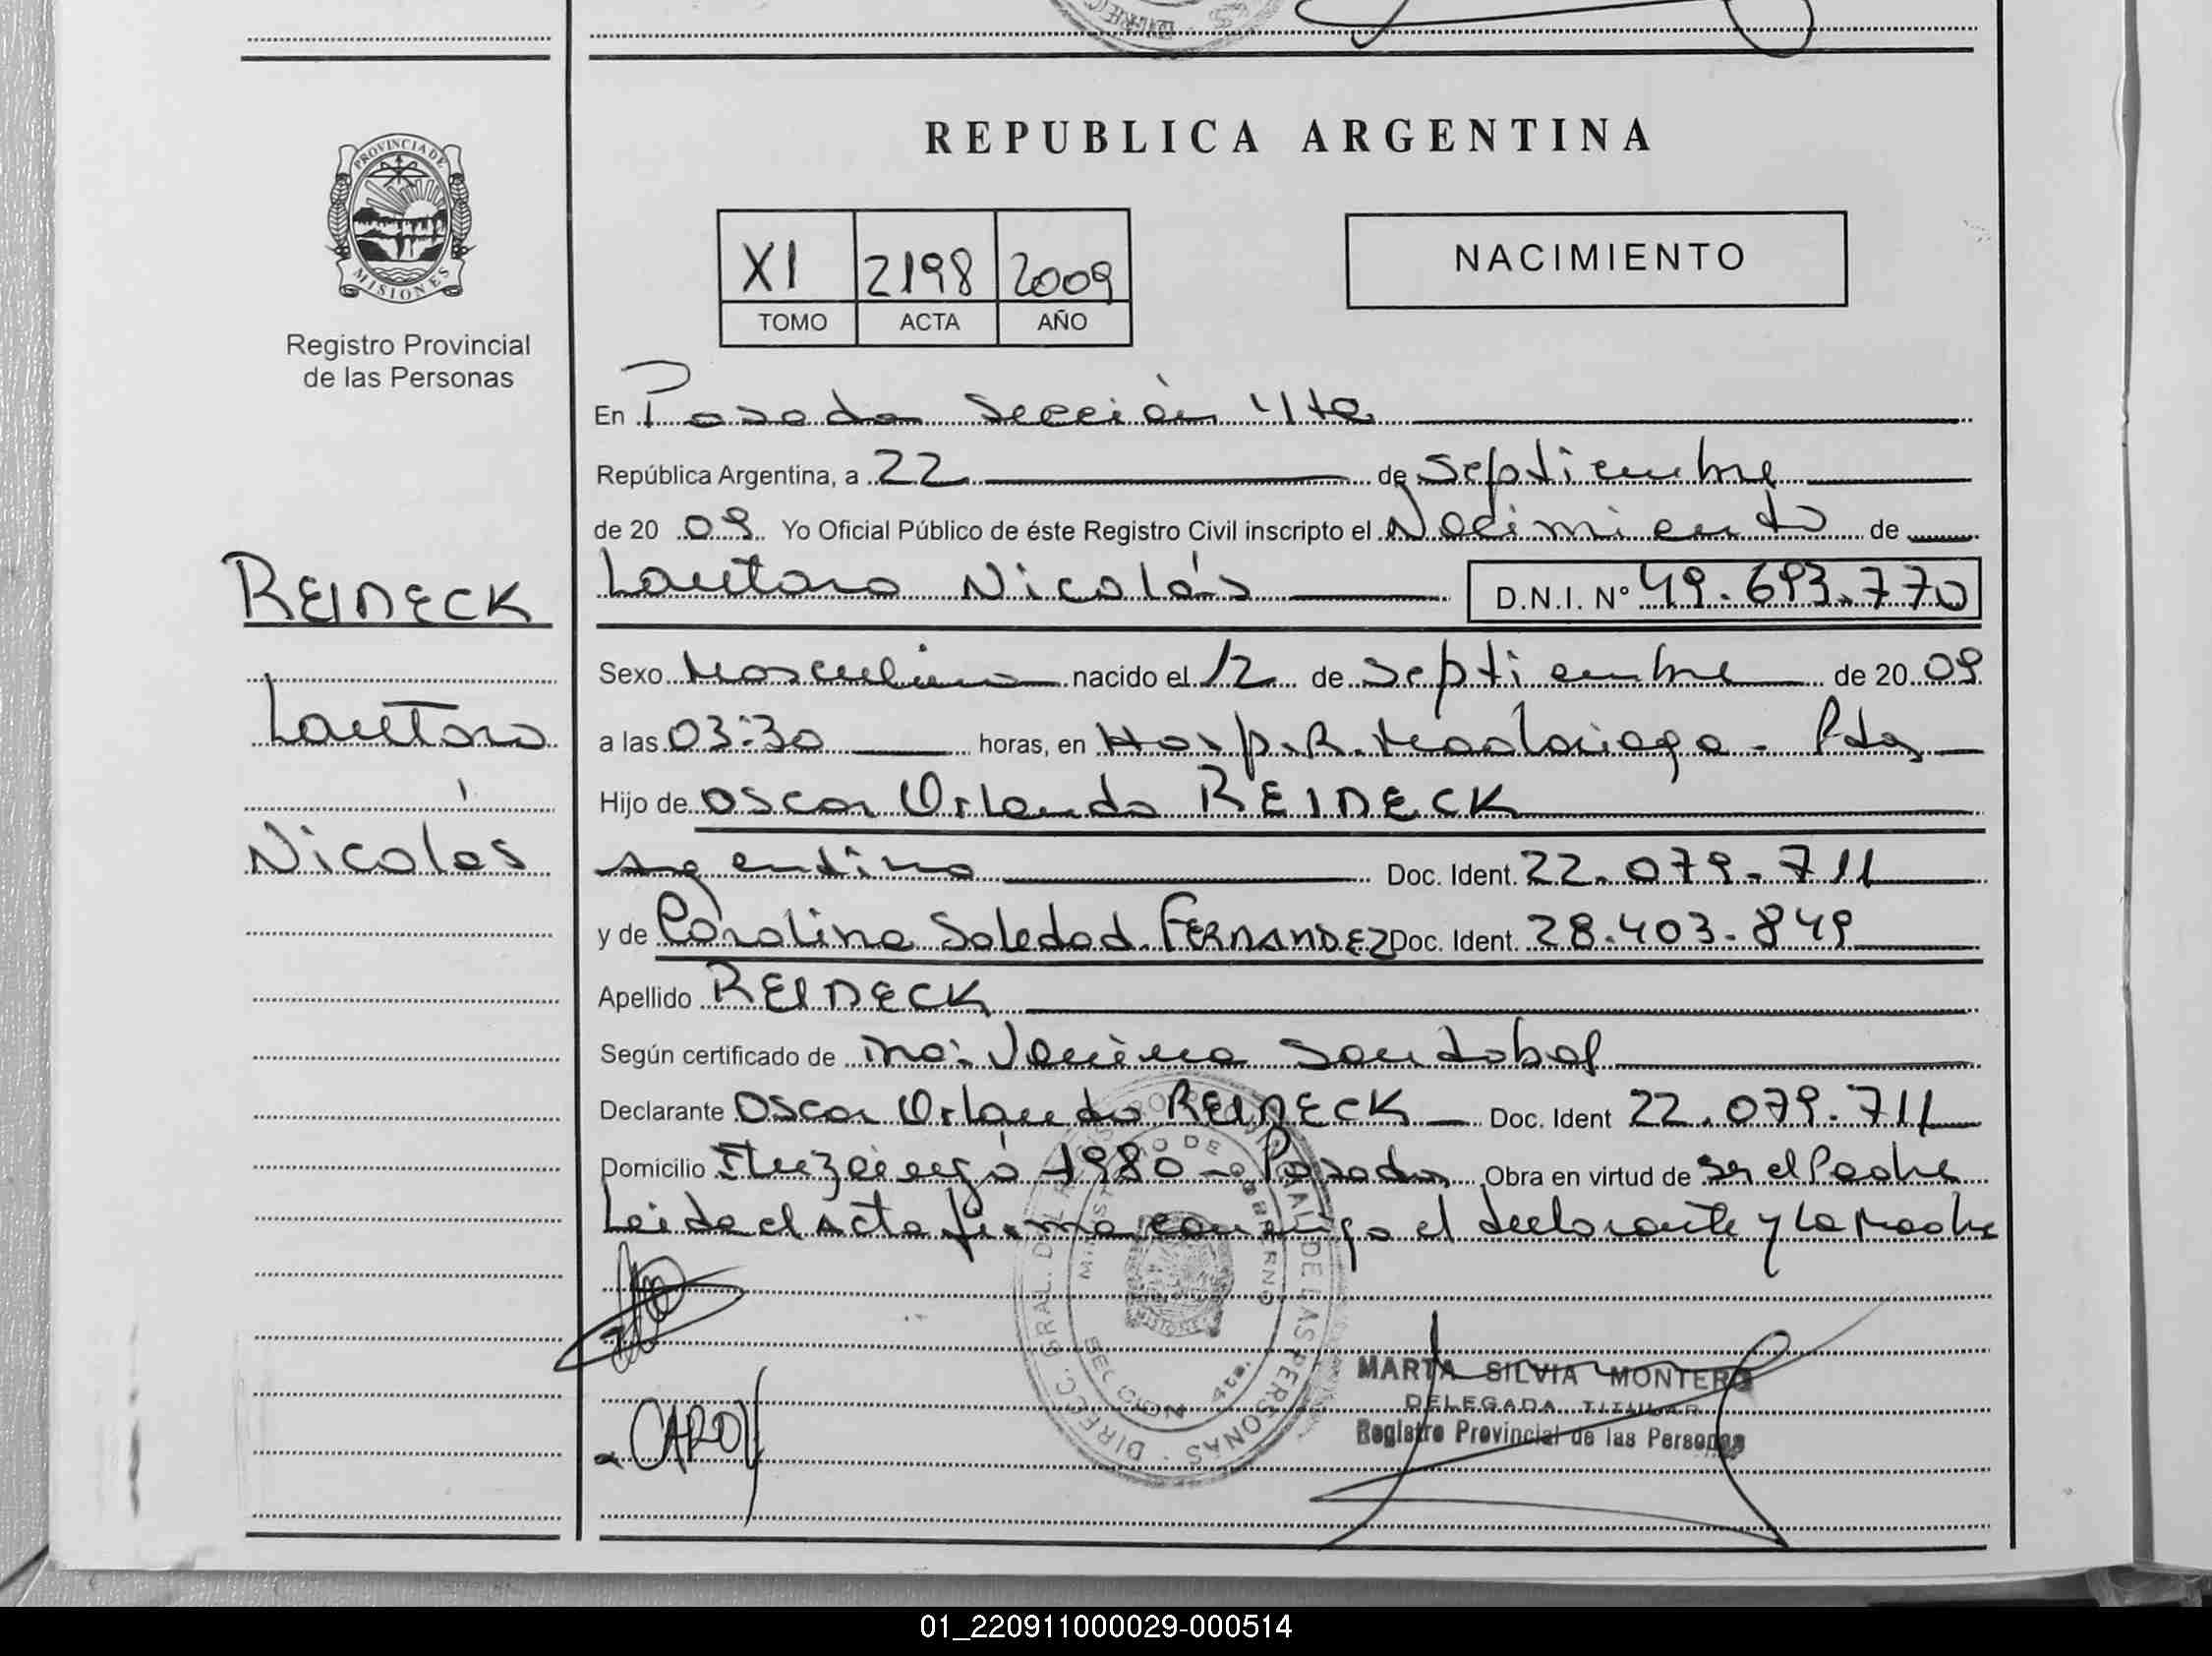 PROVINCIA DE
MISIONES
Registro Provincial
de las Personas
REINECK
Lautaro
Nicolás
REPUBLICA ARGENTINA
XI 2198 2009
TOMO ACTA AÑO
NACIMIENTO
En Posadas Sección 4ta
República Argentina, a 22 de Septiembre
de 20 09 Yo Oficial Público de éste Registro Civil inscripto el Nacimiento de
Lautaro Nicolás D.N.I. Nº 49.693.770
Sexo Masculino nacido el 12 de Septiembre de 20 09
a las 03:30 horas, en Hosp. R. Madariaga - Pdas
Hijo de Oscar Orlando REINECK
Argentino Doc. Ident. 22.079.711
y de Carolina Soledad FERNANDEZ Doc. Ident. 28.403.849
Apellido REINECK
Según certificado de Yanina Sandobal
Declarante Oscar Orlando REINECK Doc. Ident 22.079.711
Domicilio Ituzaingó 1980 - Posadas Obra en virtud de ser el Padre
Leida el Acta firma conmigo el declarante y la Madre
CARO
DIRECC. GRAL. DEL REGISTRO PROVINCIAL DE LAS PERSONAS
MINISTERIO DE GOBIERNO
SECCION 4ta.
MARTA SILVIA MONTERO
DELEGADA TITULAR
Registro Provincial de las Personas
01_220911000029-000514